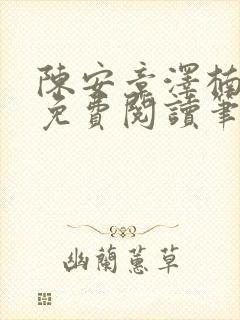 陳安章澤楠
免費閱讀筆
幽蘭蕙草